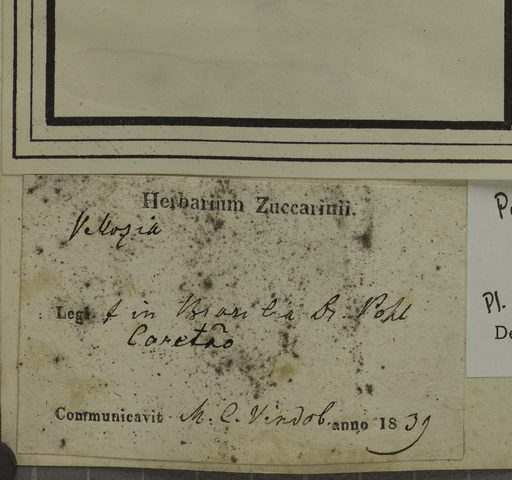 Herbarium Zuccarinii.
Vellozia
Legi t in Brasilia Dr Pohl
Caretão
Communicavit M. C. Vindob. anno 1839
Pl.